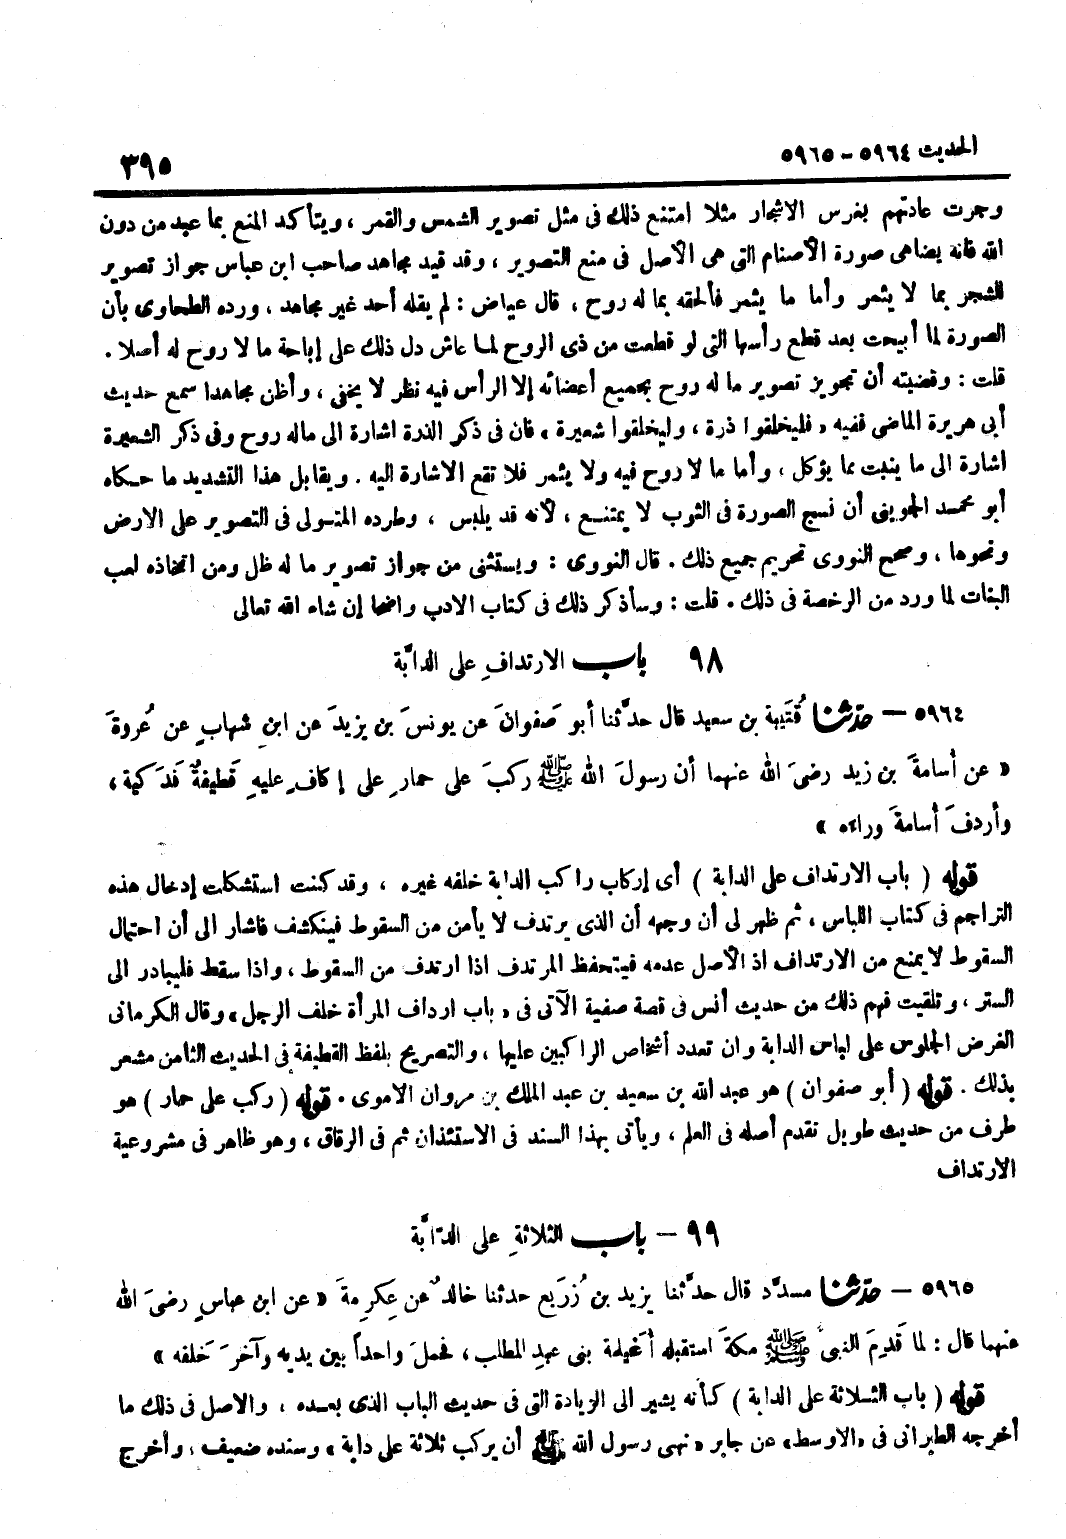 الحديث ٥٩٦٤ - ٥٩٦٥
٣٩٥
وجرت عادتهم بغرس الاشجار مثلا امتنع ذلك فى مثل تصوير الشمس والقمر ، ويتأكد المنع بما عبد من دون
الله فانه يضاهى صورة الأصنام التى هى الأصل فى منع التصوير ، وقد قيد مجاهد صاحب ابن عباس جواز تصوير
الشجر بما لا يثمر وأما ما يثمر فألحقه بما له روح ، قال عياض : لم يقله أحد غير مجاهد ، ورده الطحاوى بأن
الصورة لما أبيحت بعد قطع رأسها التى لو قطعت من ذى الروح لما عاش دل ذلك على إباحة ما لا روح له أصلا .
قلت : وقضيته أن تجويز تصوير ما له روح بجميع أعضائه إلا الرأس فيه نظر لا يخفى ، وأظن مجاهدا سمع حديث
أبى هريرة الماضى ففيه « فليخلقوا ذرة ، وليخلقوا شعيرة » فان فى ذكر الذرة اشارة الى ماله روح وفى ذكر الشعيرة
اشارة الى ما ينبت مما يؤكل ، وأما ما لا روح فيه ولا يثمر فلا تقع الاشارة اليه . ويقابل هذا التشديد ما حكاه
أبو محمد الجوينى أن نسج الصورة فى الثوب لا يمتنع ، لأنه قد يلبس ، وطرده المتولى فى التصوير على الارض
ونحوها ، وصحح النووى تحريم جميع ذلك . قال النووى : ويستثنى من جواز تصوير ما له ظل ومن اتخاذه لعب
البنات لما ورد من الرخصة فى ذلك . قلت : وسأذكر ذلك فى كتاب الادب واضحا إن شاء الله تعالى
٩٨ باب الارتدافِ على الدابَّة
٥٩٦٤ - حدّثنا قُتَيبة بن سعيد قال حدَّثنا أبو صَفوانَ عن يونسَ بن يزيدَ عن ابنِ شهابٍ عن عُروةَ
« عن أسامةَ بن زيد رضىَ الله عنهما أن رسولَ الله ﷺ ركبَ على حمارٍ على إكافٍ عليهِ قَطيفةٌ فَدَكية ،
وأردفَ أسامةَ وراءه »
قوله ( باب الارتداف على الدابة ) أى إركاب راكب الدابة خلفه غيره ، وقد كنت استشكلت إدخال هذه
التراجم فى كتاب اللباس ، ثم ظهر لى أن وجهه أن الذى يرتدف لا يأمن من السقوط فينكشف فأشار الى أن احتمال
السقوط لا يمنع من الارتداف اذ الأصل عدمه فيتحفظ المرتدف اذا ارتدف من السقوط ، واذا سقط فليبادر الى
الستر ، وتلقيت فهم ذلك من حديث أنس فى قصة صفية الآتى فى « باب ارداف المرأة خلف الرجل » وقال الكرمانى
الغرض الجلوس على لباس الدابة وان تعدد أشخاص الراكبين عليها ، والتصريح بلفظ القطيفة فى الحديث الثامن مشعر
بذلك . قوله ( أبو صفوان ) هو عبد الله بن سعيد بن عبد الملك بن مروان الاموى . قوله ( ركب على حمار ) هو
طرف من حديث طويل تقدم أصله فى العلم ، ويأتى بهذا السند فى الاستئذان ثم فى الرقاق ، وهو ظاهر فى مشروعية
الارتداف
٩٩ - باب الثلاثةِ على الدابَّة
٥٩٦٥ - حدّثنا مسدَّد قال حدَّثنا يزيد بن زُرَيع حدثنا خالدٌ عن عِكرِمةَ « عن ابن عباسٍ رضىَ الله
عنهما قال : لما قَدِمَ النبىُّ ﷺ مكةَ استقبله أُغَيلمة بنى عبدِ المطلب ، فحملَ واحداً بين يديه وآخرَ خلفه »
قوله ( باب الثلاثة على الدابة ) كأنه يشير الى الزيادة التى فى حديث الباب الذى بعده ، والاصل فى ذلك ما
أخرجه الطبرانى فى «الاوسط» عن جابر « نهى رسول الله ﷺ أن يركب ثلاثة على دابة » وسنده ضعيف ، وأخرج